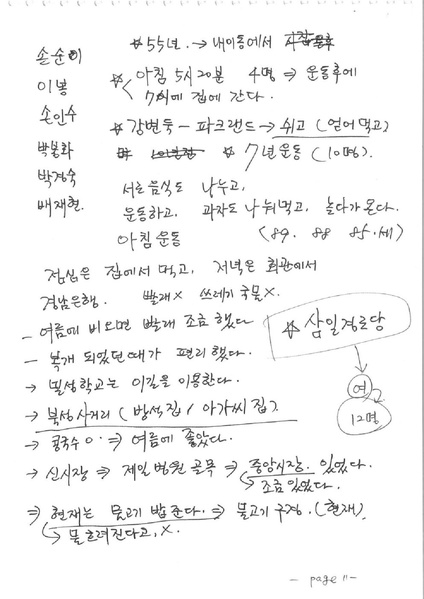 손순이
이봉
손인수
박봉화
박경숙
배재현
☆ 55년. → 내이동에서
☆ 아침 5시20분 4명 ⇒ 운동후에
7시에 집에 간다.
☆ 강변둑 - 파크랜드 → 쉬고 (얻어먹고)
☆ 7년운동 (10명).
서로음식도 나누고,
운동하고, 과자도 나눠먹고, 놀다가 온다.
아침운동 (89. 88 85.세)
점심은 집에서 먹고, 저녁은 회관에서
경남은행. 빨래X 쓰레기 국물X.
- 여름에 비오면 빨래 조금 했다
☆ 삼일경로당
- 복개 되었던때가 편리했다.
여
12명
→ 밀성학교는 이길을 이용한다.
→ 북성사거리 (방석집 / 아가씨집).
→ 콩국수 ○ ⇒ 여름에 좋았다.
→ 신시장 ⇒ 제일병원 골목 ⇒ 중앙시장. 있었다.
조금있었다.
⇒ 현재는 물고기 밥준다. ⇒ 물고기 구경. (현재)
물흐려진다고, X.
- page 11 -